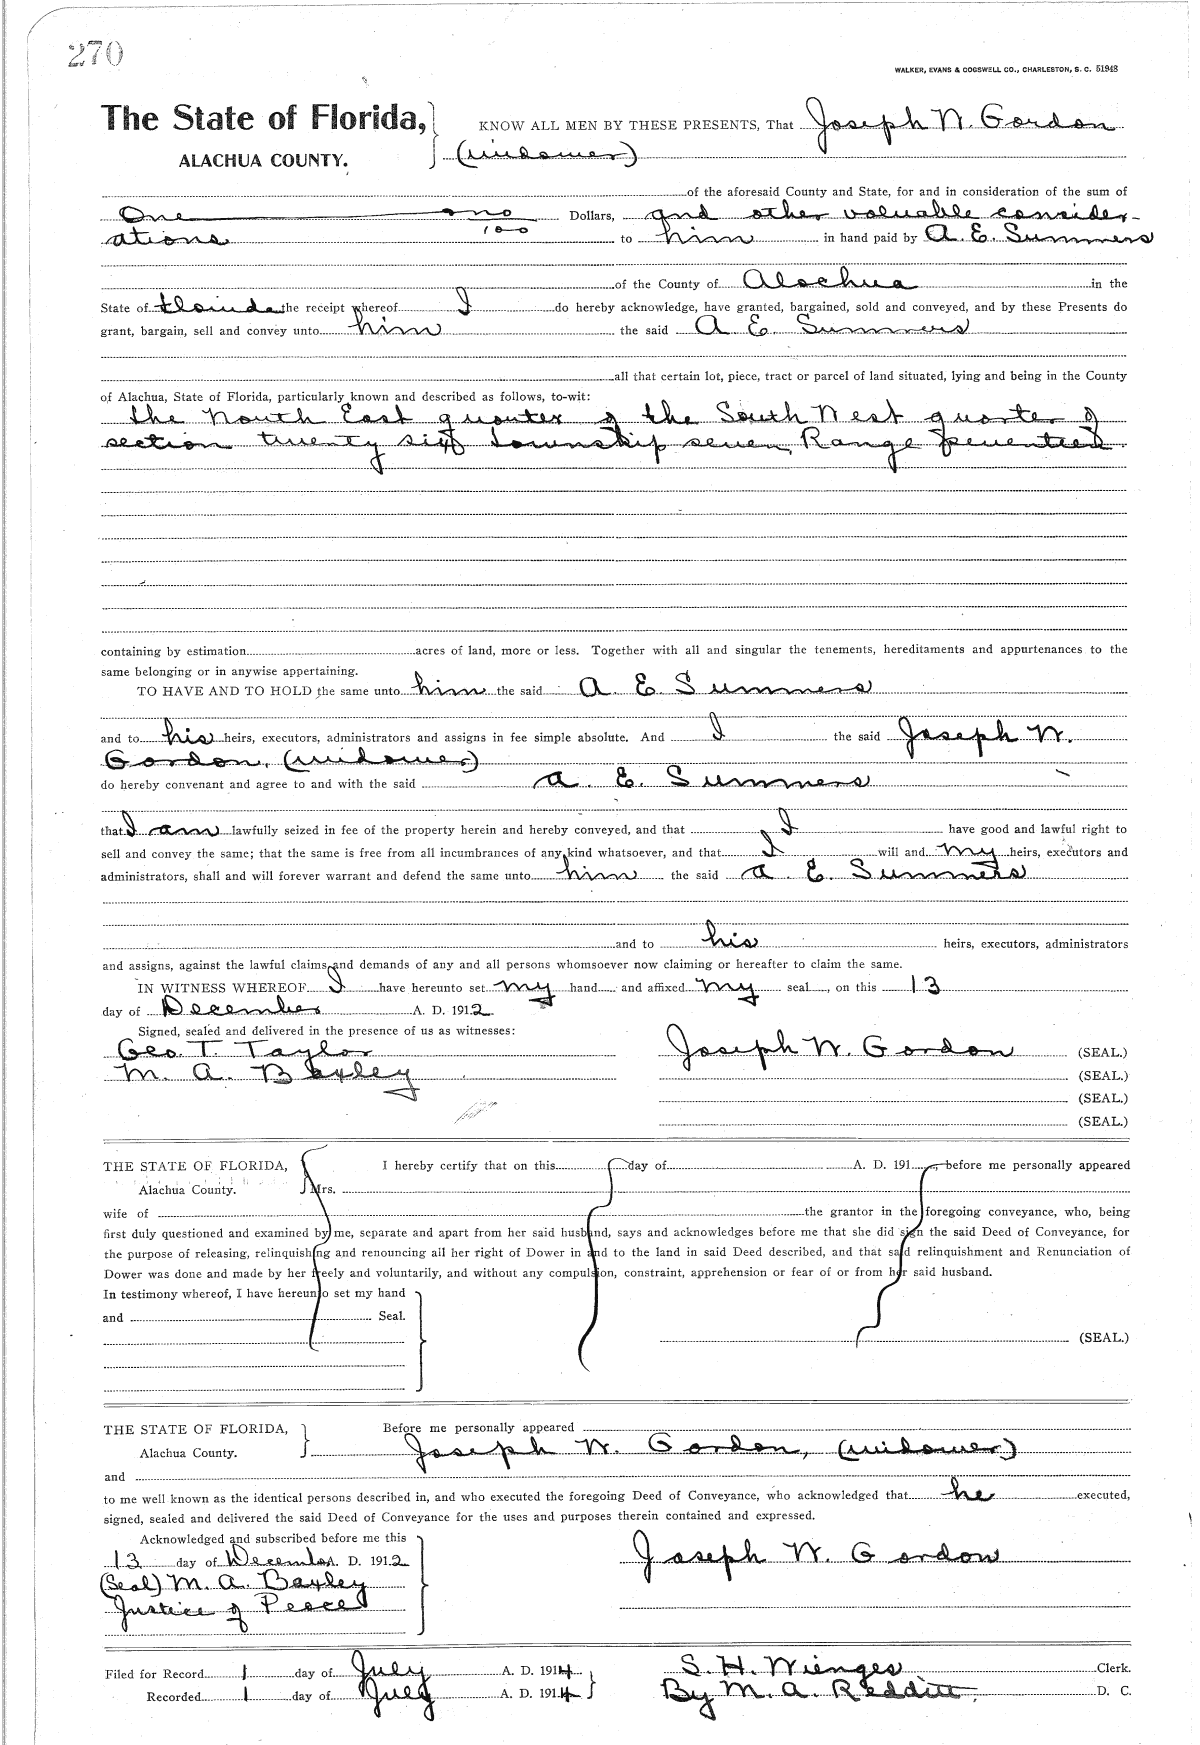 270
WALKER, EVANS & COGSWELL CO., CHARLESTON, S. C. 51948
The State of Florida, KNOW ALL MEN BY THESE PRESENTS, That Joseph W. Gordon
ALACHUA COUNTY. (widower)
of the aforesaid County and State, for and in consideration of the sum of
One no/100 Dollars, and other valuable consider-
ations to him in hand paid by A. E. Summers
of the County of Alachua in the
State of Florida the receipt whereof I do hereby acknowledge, have granted, bargained, sold and conveyed, and by these Presents do
grant, bargain, sell and convey unto him the said A E. Summers
all that certain lot, piece, tract or parcel of land situated, lying and being in the County
of Alachua, State of Florida, particularly known and described as follows, to-wit:
the North East quarter of the South West quarter of
section twenty six township seven, Range seventeen.
containing by estimation acres of land, more or less. Together with all and singular the tenements, hereditaments and appurtenances to the
same belonging or in anywise appertaining.
TO HAVE AND TO HOLD the same unto him the said A. E. Summers
and to his heirs, executors, administrators and assigns in fee simple absolute. And I the said Joseph W.
Gordon, (widower)
do hereby convenant and agree to and with the said A. E. Summers
that I am lawfully seized in fee of the property herein and hereby conveyed, and that I have good and lawful right to
sell and convey the same; that the same is free from all incumbrances of any kind whatsoever, and that I will and my heirs, executors and
administrators, shall and will forever warrant and defend the same unto him the said A. E. Summers
and to his heirs, executors, administrators
and assigns, against the lawful claims and demands of any and all persons whomsoever now claiming or hereafter to claim the same.
IN WITNESS WHEREOF I have hereunto set my hand and affixed my seal, on this 13
day of December A. D. 1912
Signed, sealed and delivered in the presence of us as witnesses:
Geo. T. Taylor Joseph W. Gordon (SEAL.)
M. A. Baxley (SEAL.)
(SEAL.)
(SEAL.)
THE STATE OF FLORIDA, I hereby certify that on this day of A. D. 191 , before me personally appeared
Alachua County. Mrs.
wife of the grantor in the foregoing conveyance, who, being
first duly questioned and examined by me, separate and apart from her said husband, says and acknowledges before me that she did sign the said Deed of Conveyance, for
the purpose of releasing, relinquishing and renouncing all her right of Dower in and to the land in said Deed described, and that said relinquishment and Renunciation of
Dower was done and made by her freely and voluntarily, and without any compulsion, constraint, apprehension or fear of or from her said husband.
In testimony whereof, I have hereunto set my hand
and Seal.
(SEAL.)
THE STATE OF FLORIDA, Before me personally appeared
Alachua County. Joseph W. Gordon, (widower)
and
to me well known as the identical persons described in, and who executed the foregoing Deed of Conveyance, who acknowledged that he executed,
signed, sealed and delivered the said Deed of Conveyance for the uses and purposes therein contained and expressed.
Acknowledged and subscribed before me this
13 day of December A. D. 1912 Joseph W. Gordon
(Seal) M. A. Baxley
Justice of Peace
Filed for Record 1 day of July A. D. 1914 S. H. Wienges Clerk.
Recorded 1 day of July A. D. 1914 By M. A. Redditt, D. C.